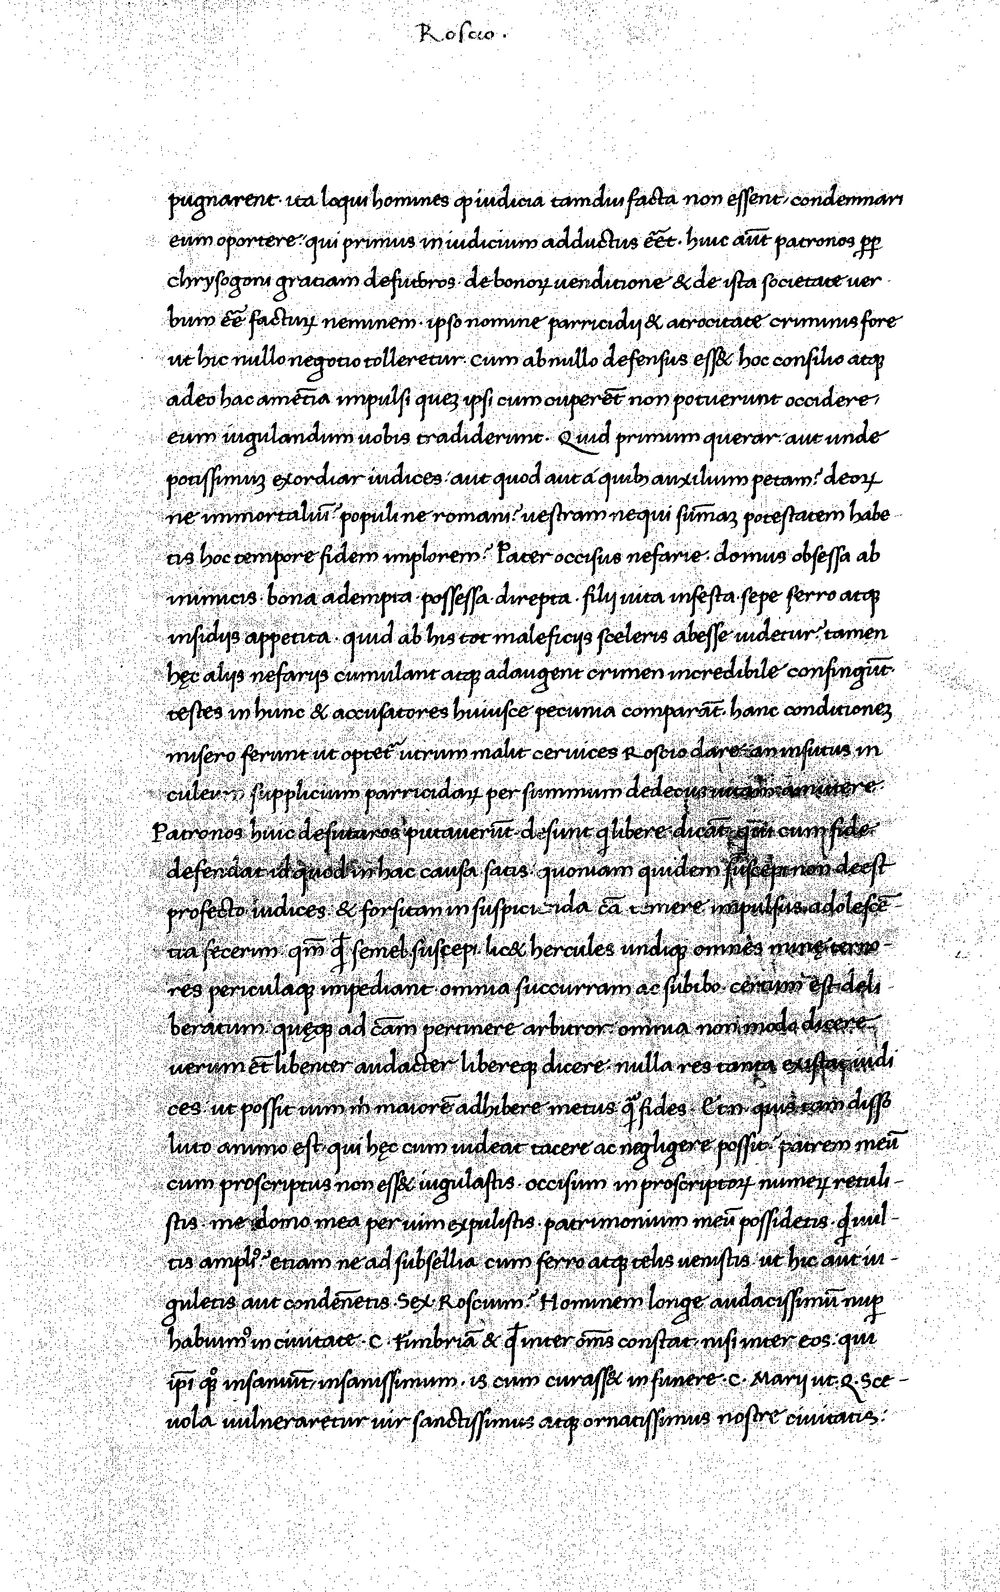 Roscio.
pugnarent. ita loqui homines ꝙ iudicia tamdiu facta non essent, condemnari
eum oportere: qui primus in iudicium adductus eēt. huic aūt patronos ꝓp
chrysogoni gratiam defuturos. de bonoꝝ uenditione & de ista societate uer
bum eē facturꝝ neminem. ipso nomine parricidij & atrocitate criminis fore
ut hic nullo negotio tolleretur. cum ab nullo defensus ess& hoc consilio atqꝫ
adeo hac amētia impulsi queꝫ ipsi cum cuperēt non potuerunt occidere,
eum iugulandum uobis tradiderunt. Quid primum querar. aut unde
potissimuꝫ exordiar iudices. aut quod aut a quibꝫ auxilium petam? deoꝝ
ne immortaliū? populi ne romani? uestram ne qui sūmaꝫ potestatem habe
tis hoc tempore fidem implorem? Pater occisus nefarie. domus obsessa ab
inimicis. bona adempta. possessa. direpta. filij uita infesta. sepe ferro atqꝫ
insidijs appetita. quid ab his tot maleficijs sceleris abesse uidetur? tamen
hęc alijs nefarijs cumulant atqꝫ adaugent crimen incredibile confingūt.
testes in hunc & accusatores huiusce pecunia comparāt. hanc conditioneꝫ
misero ferunt ut optet utrum malit ceruices Roscio dare. an insutus in
culeum supplicium parricidaꝝ per summum dedecus uitam amittere.
Patronos huic defuturos putauerūt. desunt q̇ libere dicat. qui cum fide
defendat id quod in hac causa satis. quoniam quidem suscepi non deest
profecto iudices. & forsitan in suscipienda cā temere impulsus adolescē-
tia fecerim. qm̄ ꝗ semel suscepi. lic& hercules undiqꝫ omnes terro-
res periculaqꝫ impediant. omnia succurram ac subibo. certum est deli
beratum. quęqꝫ ad cām pertinere arbitror. omnia non modo dicere
uerum ēt libenter audacter libereqꝫ dicere. nulla res tanta existat iudi
ces ut possit uim in maiorē adhibere metus qꝫ̄ fides. Etn. quis tam disso
luto animo est. qui hęc cum uideat tacere ac negligere possit? patrem meū
cum proscriptus non ess& iugulastis. occisum in proscriptoꝝ numeꝝ retuli-
stis. me domo mea per uim expulistis. patrimonium meū possidetis. ꝗ uul-
tis ampliꝰ? etiam ne ad subsellia cum ferro atqꝫ telis uenistis. ut hic aut iu-
guletis aut condēnetis Sex Roscium? Hominem longe audacissimū nuꝑ
habuimꝰ in ciuitate. C. Fimbriā & ꝗ inter om̄s constat. nisi inter eos. qui
ip̄i qꝫ insaniūt, insanissimum. is cum curass& in funere. C. Marij ut. Q. Sce-
uola uulneraretur uir sanctissimus atqꝫ ornatissimus nostre ciuitatis: